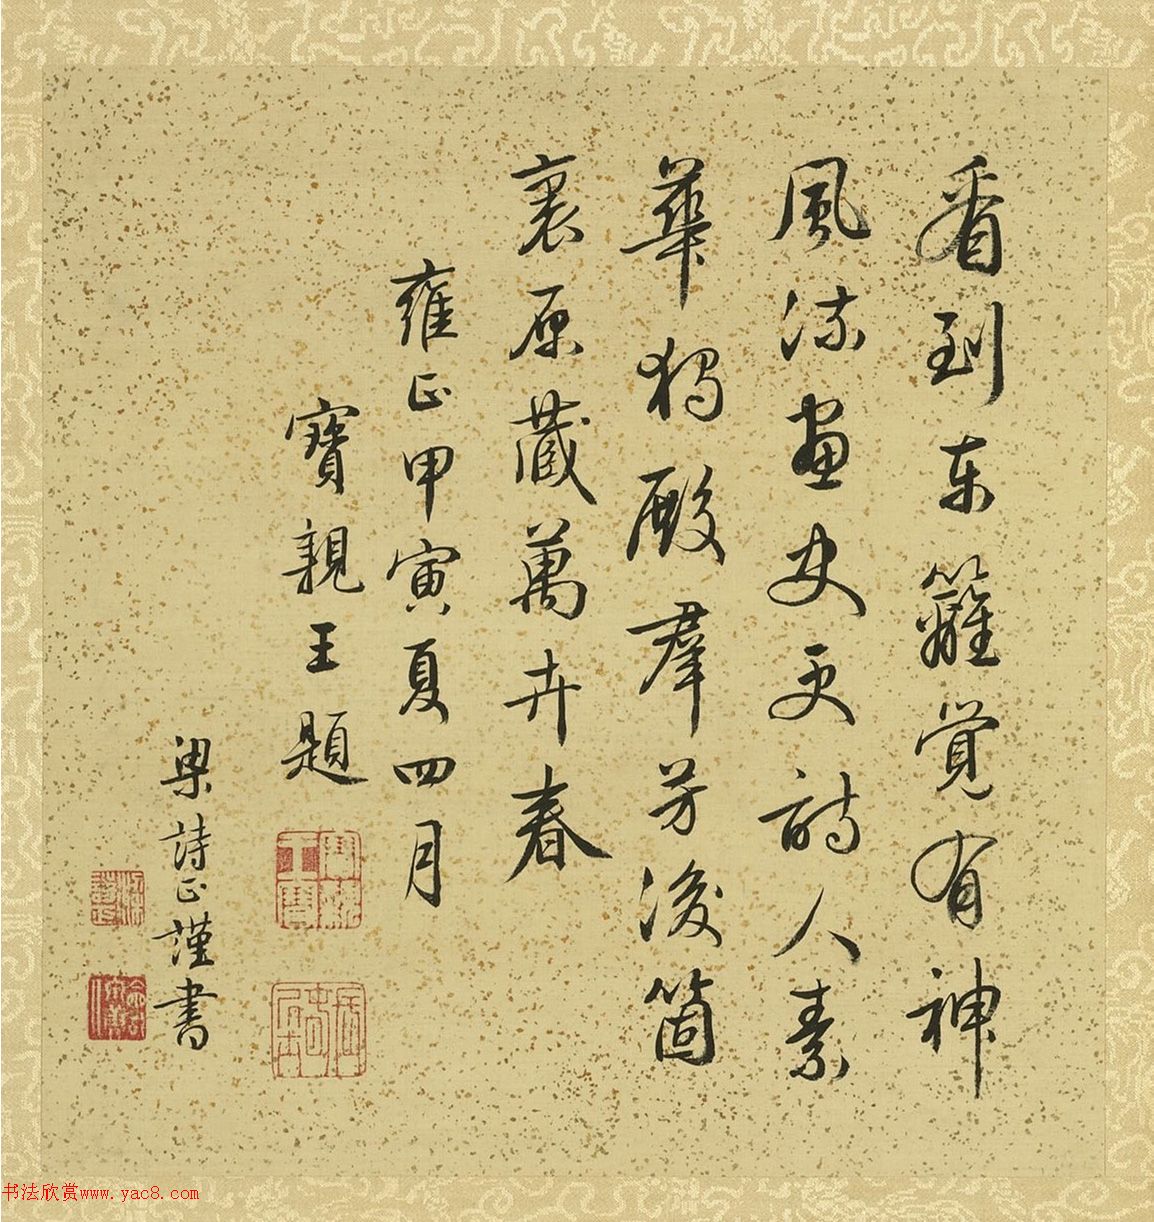 看到东籬覚有神
風流畫史更詩人素
華獨殿羣芳後箇
裏原藏萬卉春
雍正甲寅夏四月
寶親王題
梁詩正謹書
书法欣赏www.yac8.com